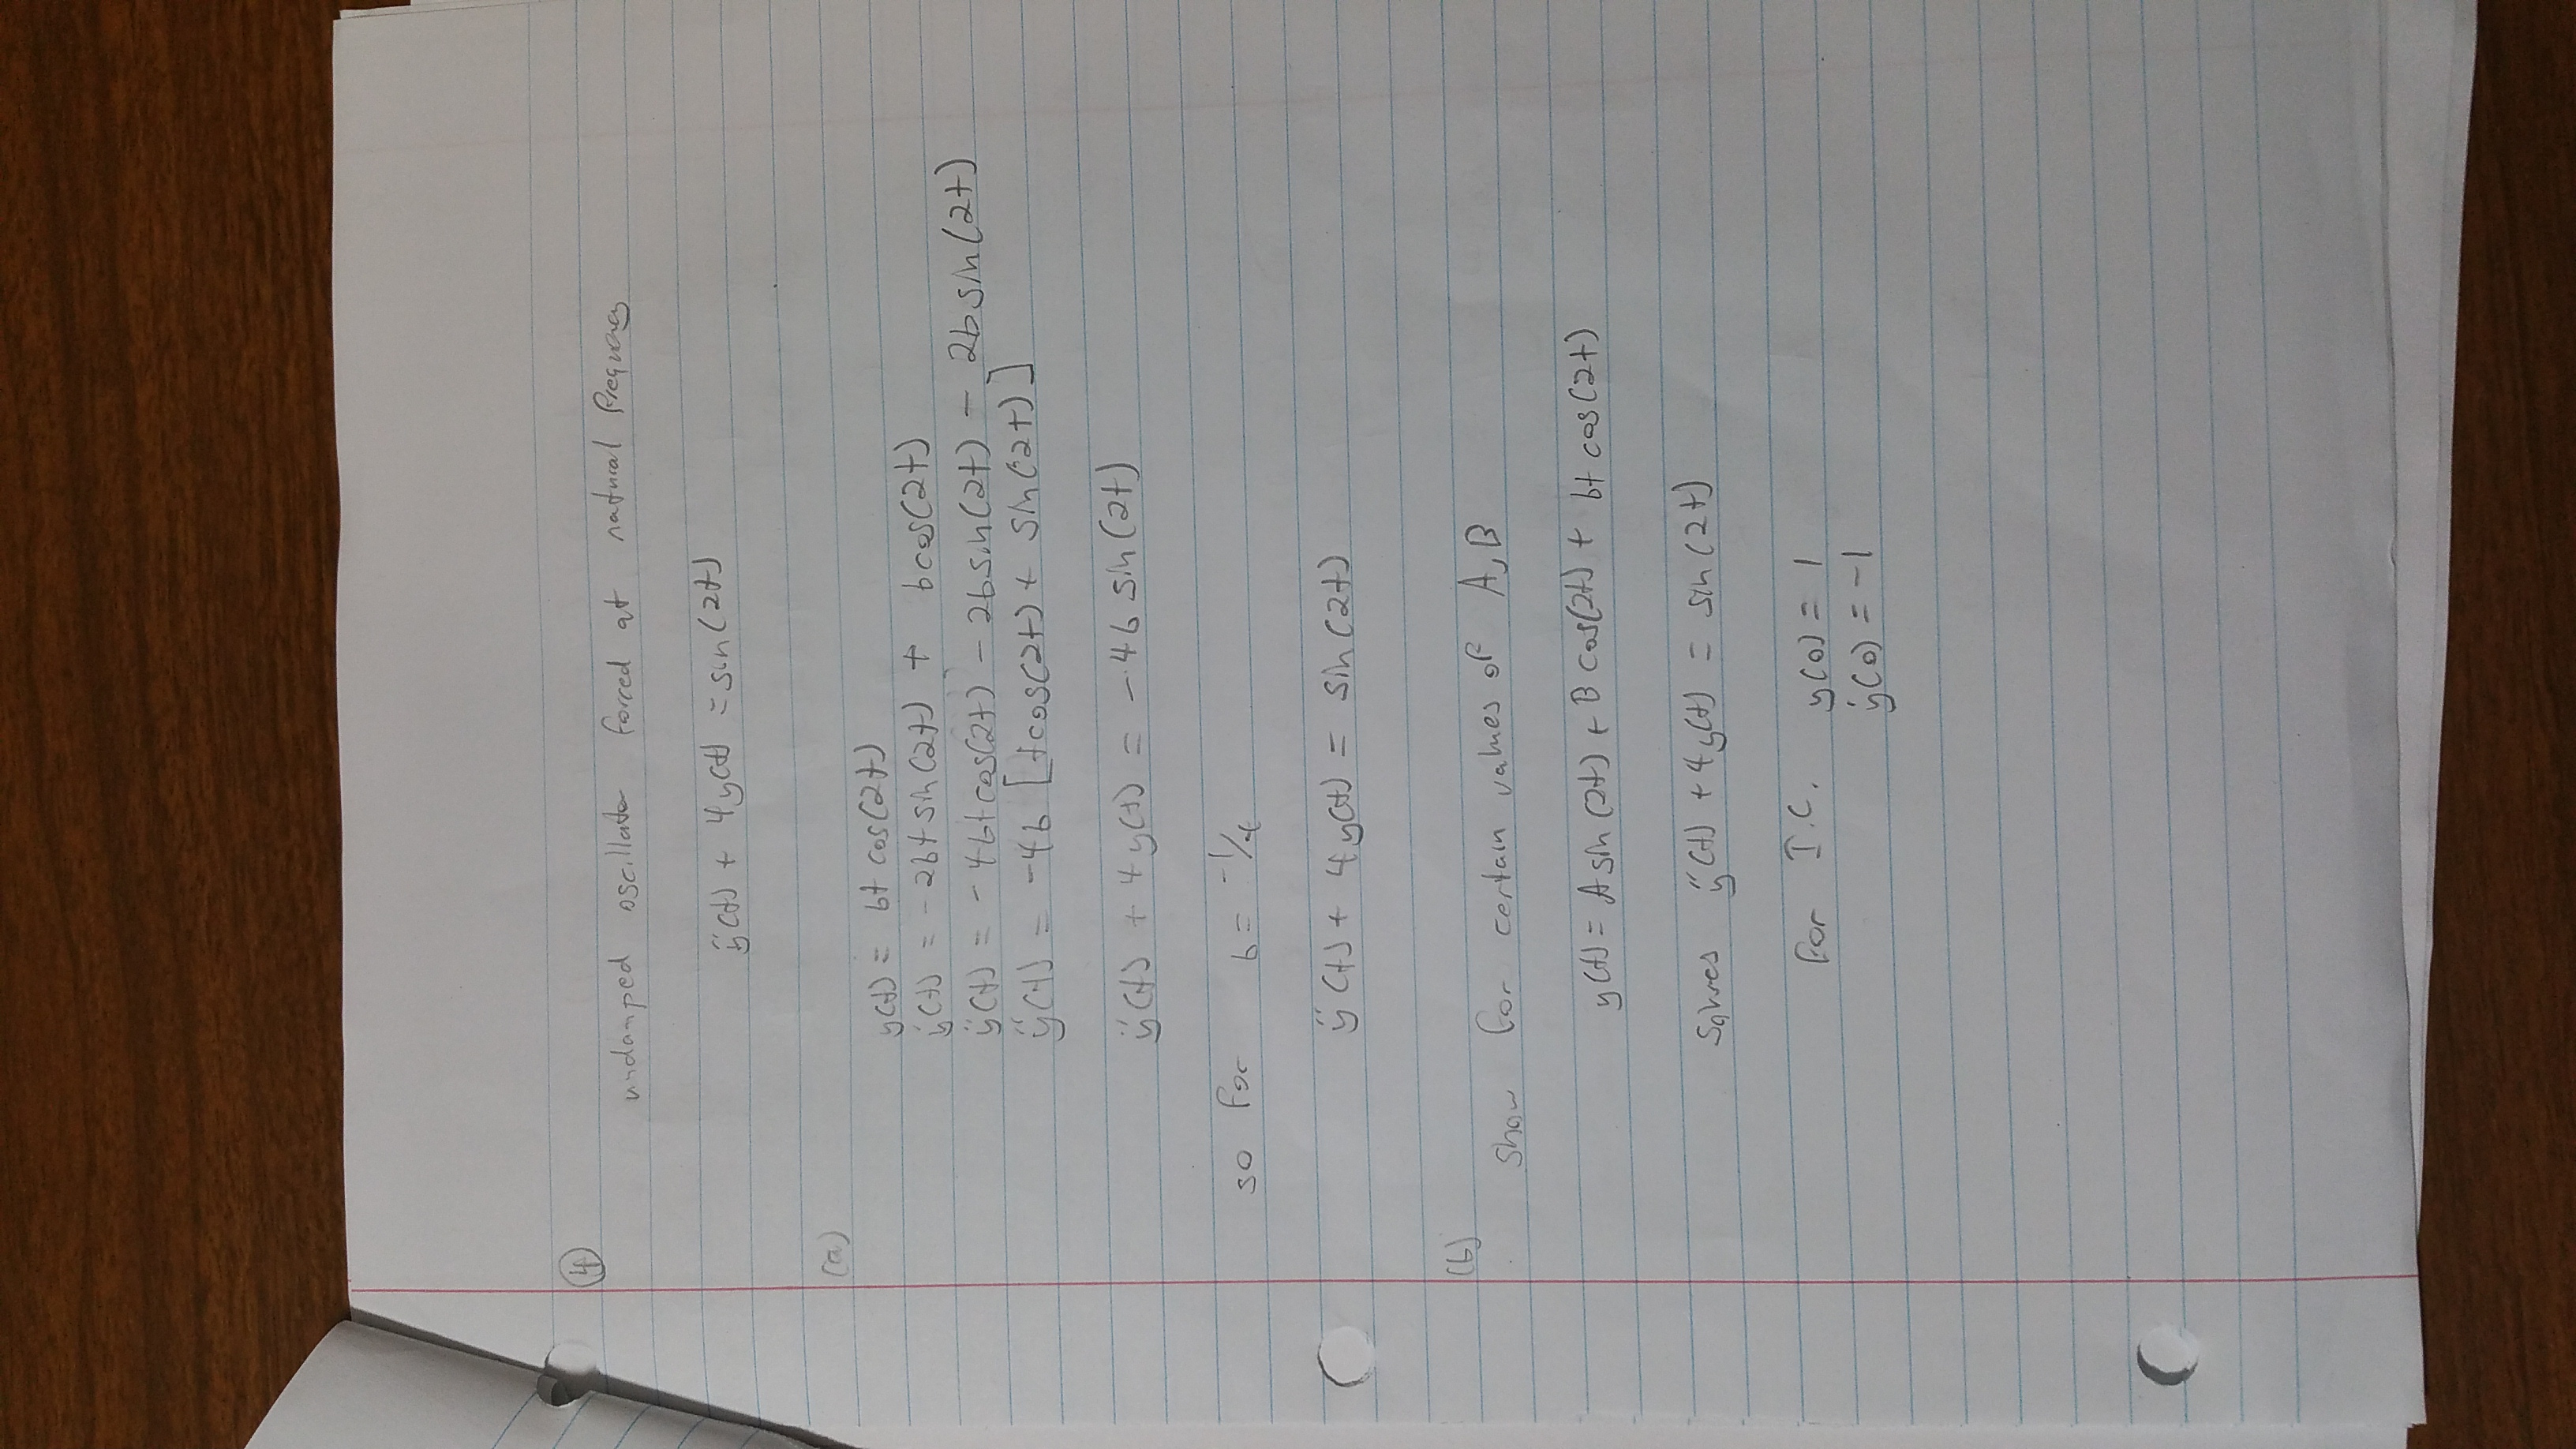 ④
undamped oscillator forced at natural frequency
ÿ(t) + 4y(t) = sin(2t)
(a)
y(t) = bt cos(2t)
ẏ(t) = -2bt sin(2t) + b cos(2t)
ÿ(t) = -4bt cos(2t) - 2b sin(2t) - 2b sin(2t)
ÿ(t) = -4b [t cos(2t) + sin(2t)]
ÿ(t) + 4y(t) = -4b sin(2t)
so for b = -1/4
ÿ(t) + 4y(t) = sin(2t)
(b)
Show for certain values of A, B
y(t) = A sin(2t) + B cos(2t) + bt cos(2t)
Solves ÿ(t) + 4y(t) = sin(2t)
for I.C. y(0) = 1
ẏ(0) = -1